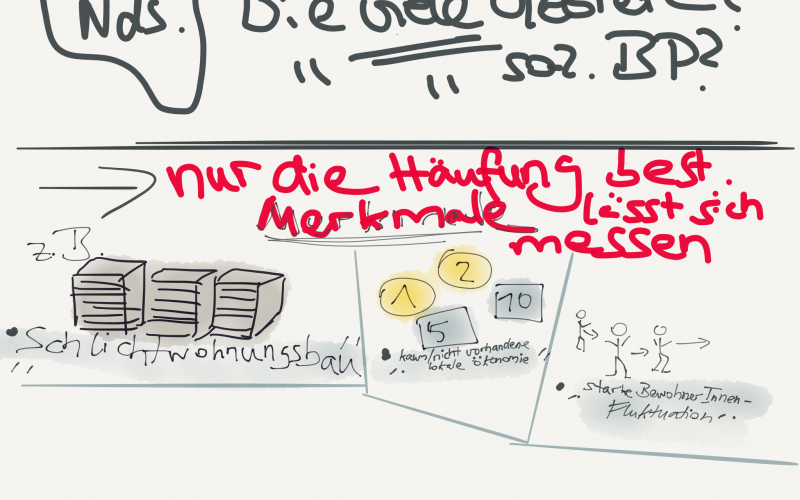 Nds.
Die viele
" " soz. BP?
nur die Häufung best.
Merkmale lässt sich
messen
z.B.
1
2
5
10
• "Schlichtwohnungsbau"
• kaum/nicht vorhandene
"lokale ökonomie"
• "starke BewohnerInnen-
Fluktuation"